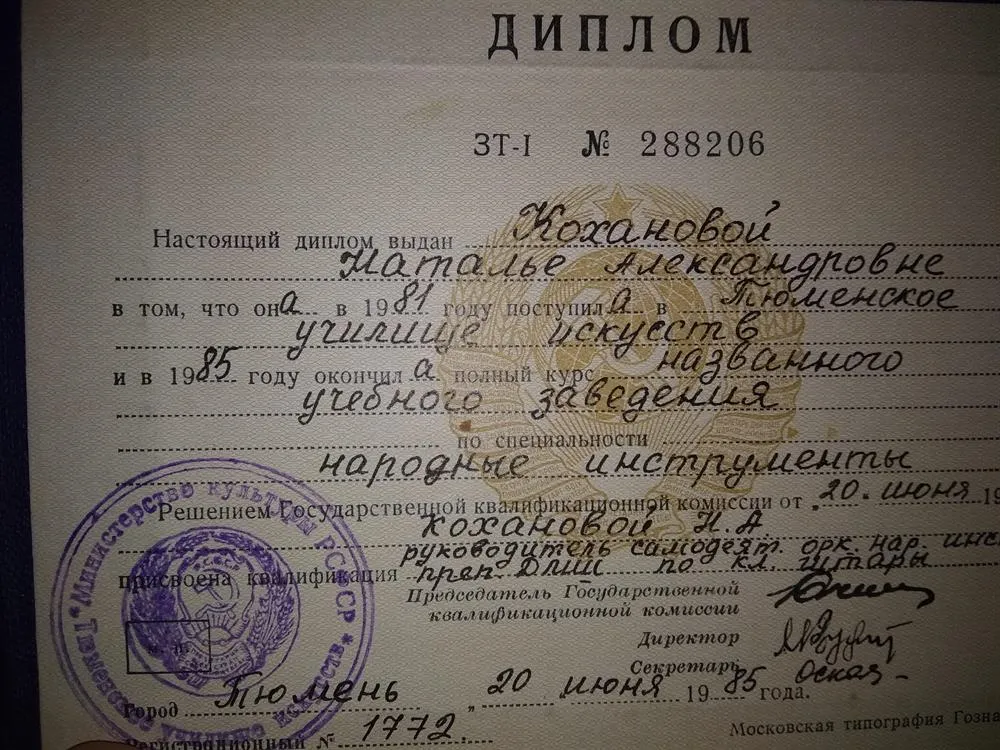 ДИПЛОМ
ЗТ-I № 288206
Настоящий диплом выдан Кохановой
Наталье Александровне
в том, что она в 1981 году поступила в Тюменское
училище искусств
и в 1985 году окончила полный курс названного
учебного заведения
по специальности
народные инструменты
Решением Государственной квалификационной комиссии от „20. июня 19
Кохановой Н. А
руководитель самодеят. орк. нар. инс
присвоена квалификация преп. ДМШ по кл. гитары
Председатель Государственной
квалификационной комиссии
Директор
Секретарь
Город Тюмень „20 июня 1985 года.
Регистрационный № 1772.
Московская типография Гозна
Министерство культуры РСФСР * Тюменское училище искусств
м. п.